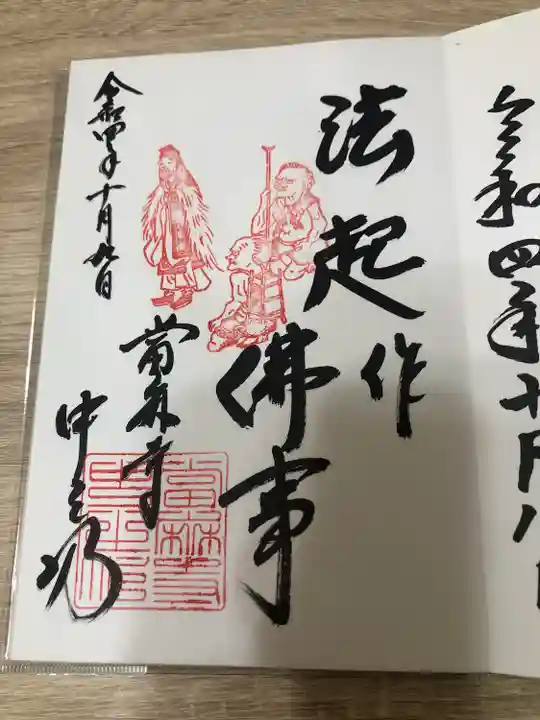 令和四年十月八日
法起
作
佛事
當麻寺
中之坊
令和四年十月九日